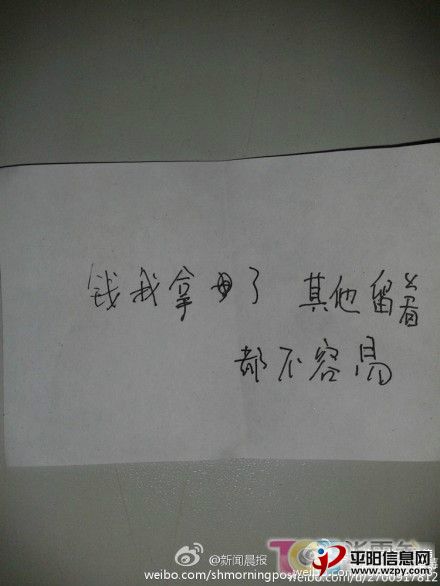 钱我拿了 其他留着
都不容易
@新闻晨报
weibo.com/shmorningpos
weibo.com/u/2700917812
平阳信息网
www.wzpy.com